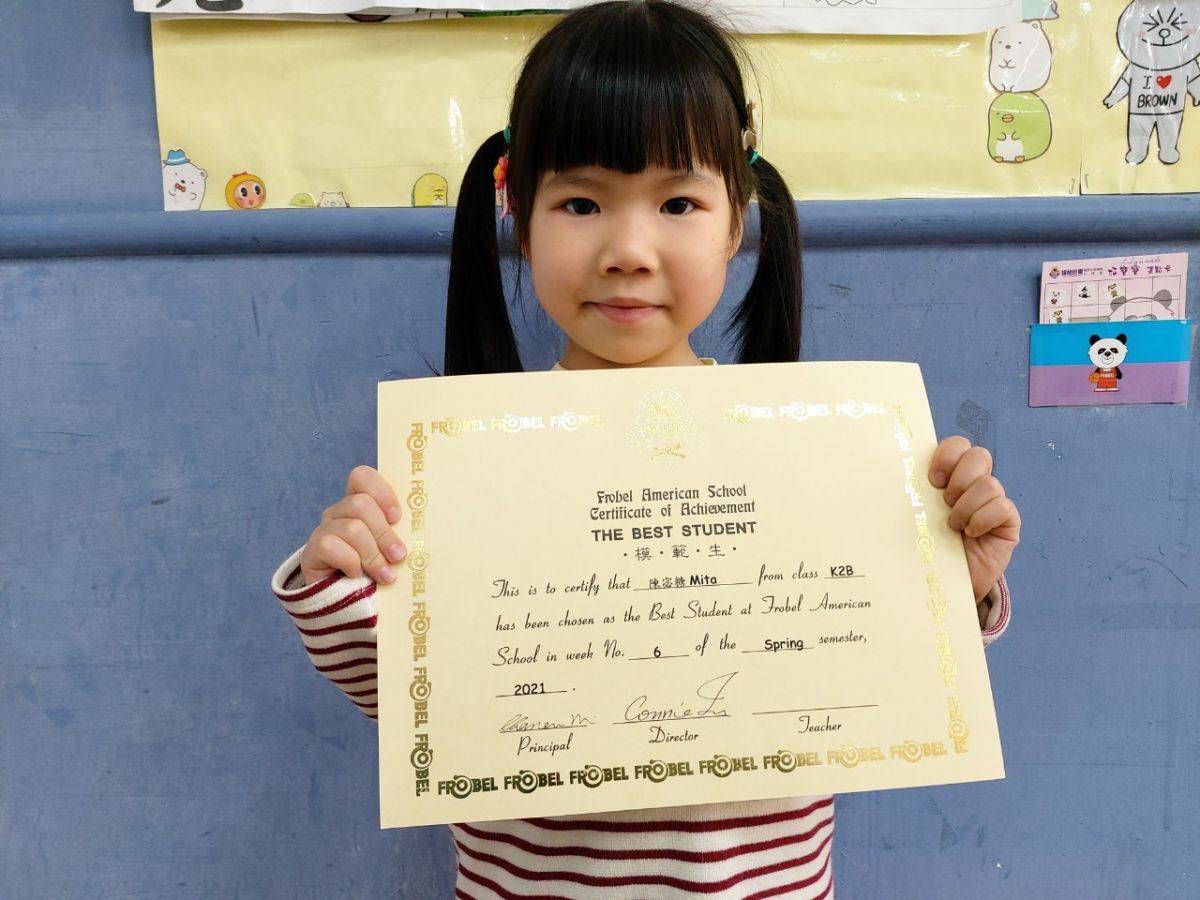 I ♥
BROWN
FROBEL FROBEL FROBEL FROBEL FROBEL FROBEL
Frobel American School
Certificate of Achievement
THE BEST STUDENT
·模·範·生·
This is to certify that 陳宓糖 Mita from class K2B
has been chosen as the Best Student at Frobel American
School in week No. 6 of the Spring semester,
2021 .
Connie
Principal Director Teacher
FROBEL FROBEL FROBEL FROBEL FROBEL FROBEL FROBEL FROBEL
FROBEL FROBEL FROBEL FROBEL FROBEL FROBEL
FROBEL FROBEL FROBEL FROBEL FROBEL
Hannah
好寶寶